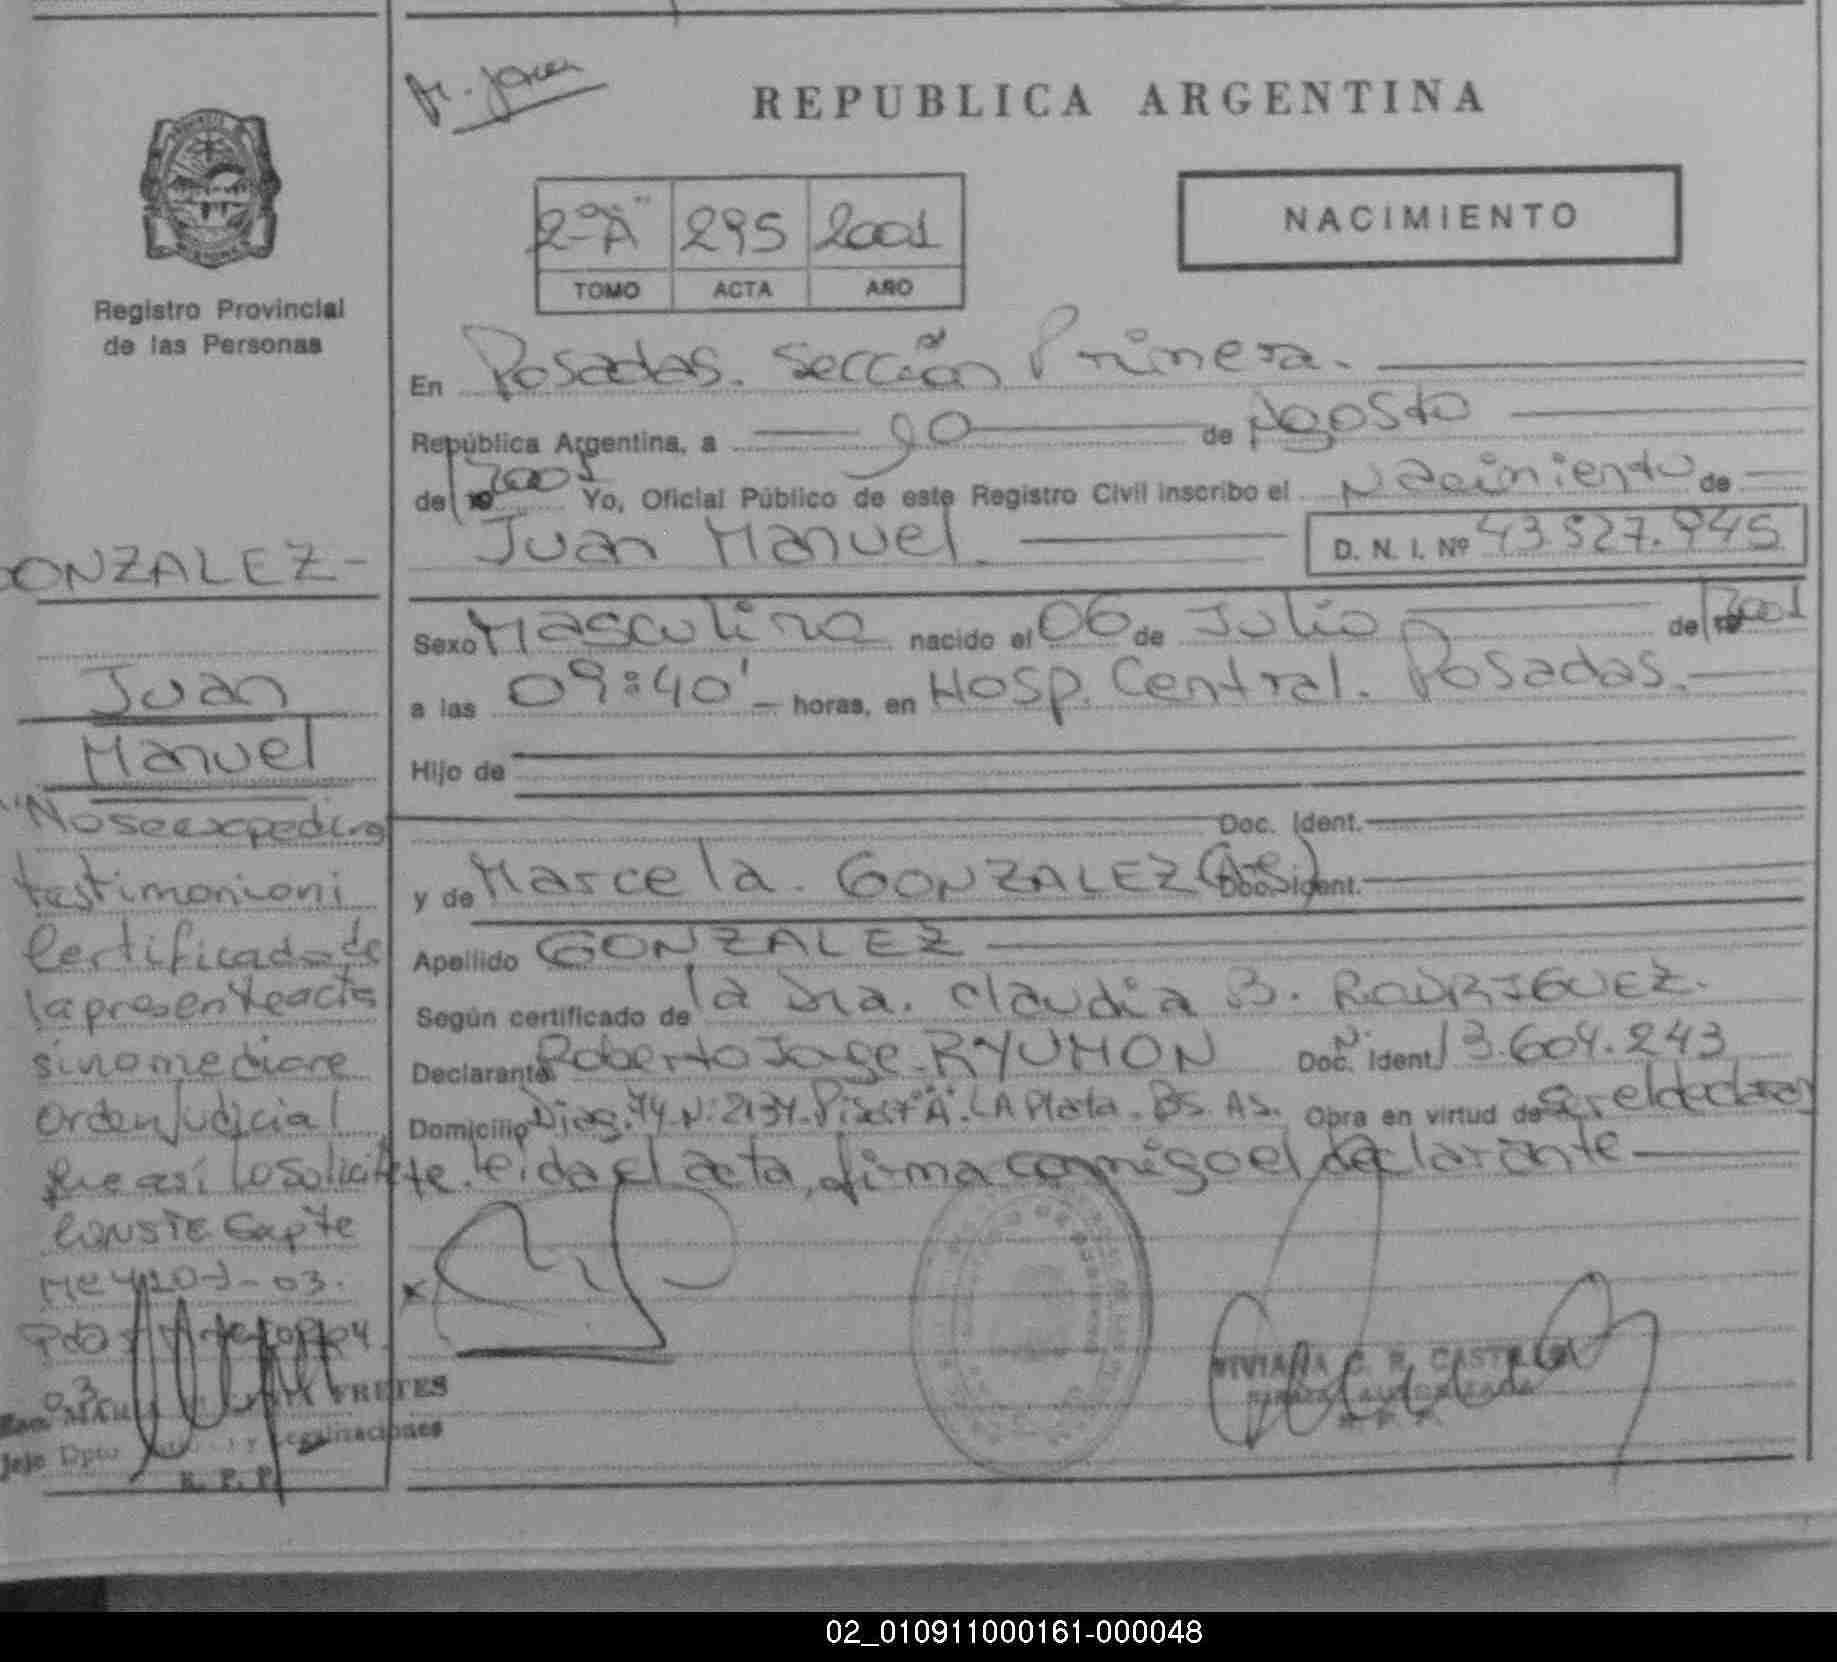 REPUBLICA ARGENTINA
2º "A" 295 2001
TOMO ACTA AÑO
NACIMIENTO
Registro Provincial
de las Personas
En Posadas. Sección Primera.
República Argentina, a de Agosto
de 2001 Yo, Oficial Público de este Registro Civil inscribo el Nacimiento de
Juan Manuel. D. N. I. Nº 43.527.945
GONZALEZ-
Juan
Manuel
Sexo Masculino nacido el 06 de Julio de 2001
a las 09:40' horas, en Hosp. Central. Posadas.
Hijo de
Doc. Ident.
y de Marcela. GONZALEZ Doc. Ident.
Apellido GONZALEZ
Según certificado de la Dra. Claudia B. RODRIGUEZ.
Declarante Roberto Jorge RYUMON Doc. Ident. Nº 13.604.243
Domicilio Diag. 74 Nº 2134. Piso "A". LA Plata. BS. AS. Obra en virtud de
leida el acta, firma conmigo el declarante
"No se expedira
testimonio ni
Certificado de
la presente acta
sino mediare
orden judicial
que así lo solicite.
CONSTE
VIVIANA C. R. CASTILLO
FRETES
Jefe Dpto y Legalizaciones
R. P. P.
02_010911000161-000048